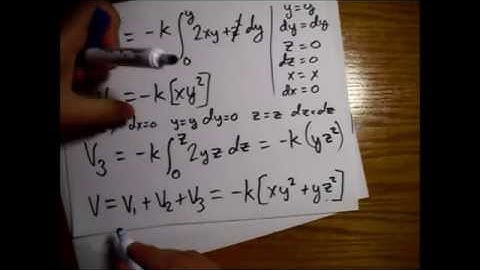 = -k ∫₀ʸ 2xy + z² dy
y = y
dy = dy
z = 0
dz = 0
x = x
dx = 0
= -k [xy²]
dx=0 y=y dy=0 z=z dz=dz
V₃ = -k ∫₀ᶻ 2yz dz = -k (yz²)
V = V₁ + V₂ + V₃ = -k [xy² + yz²]